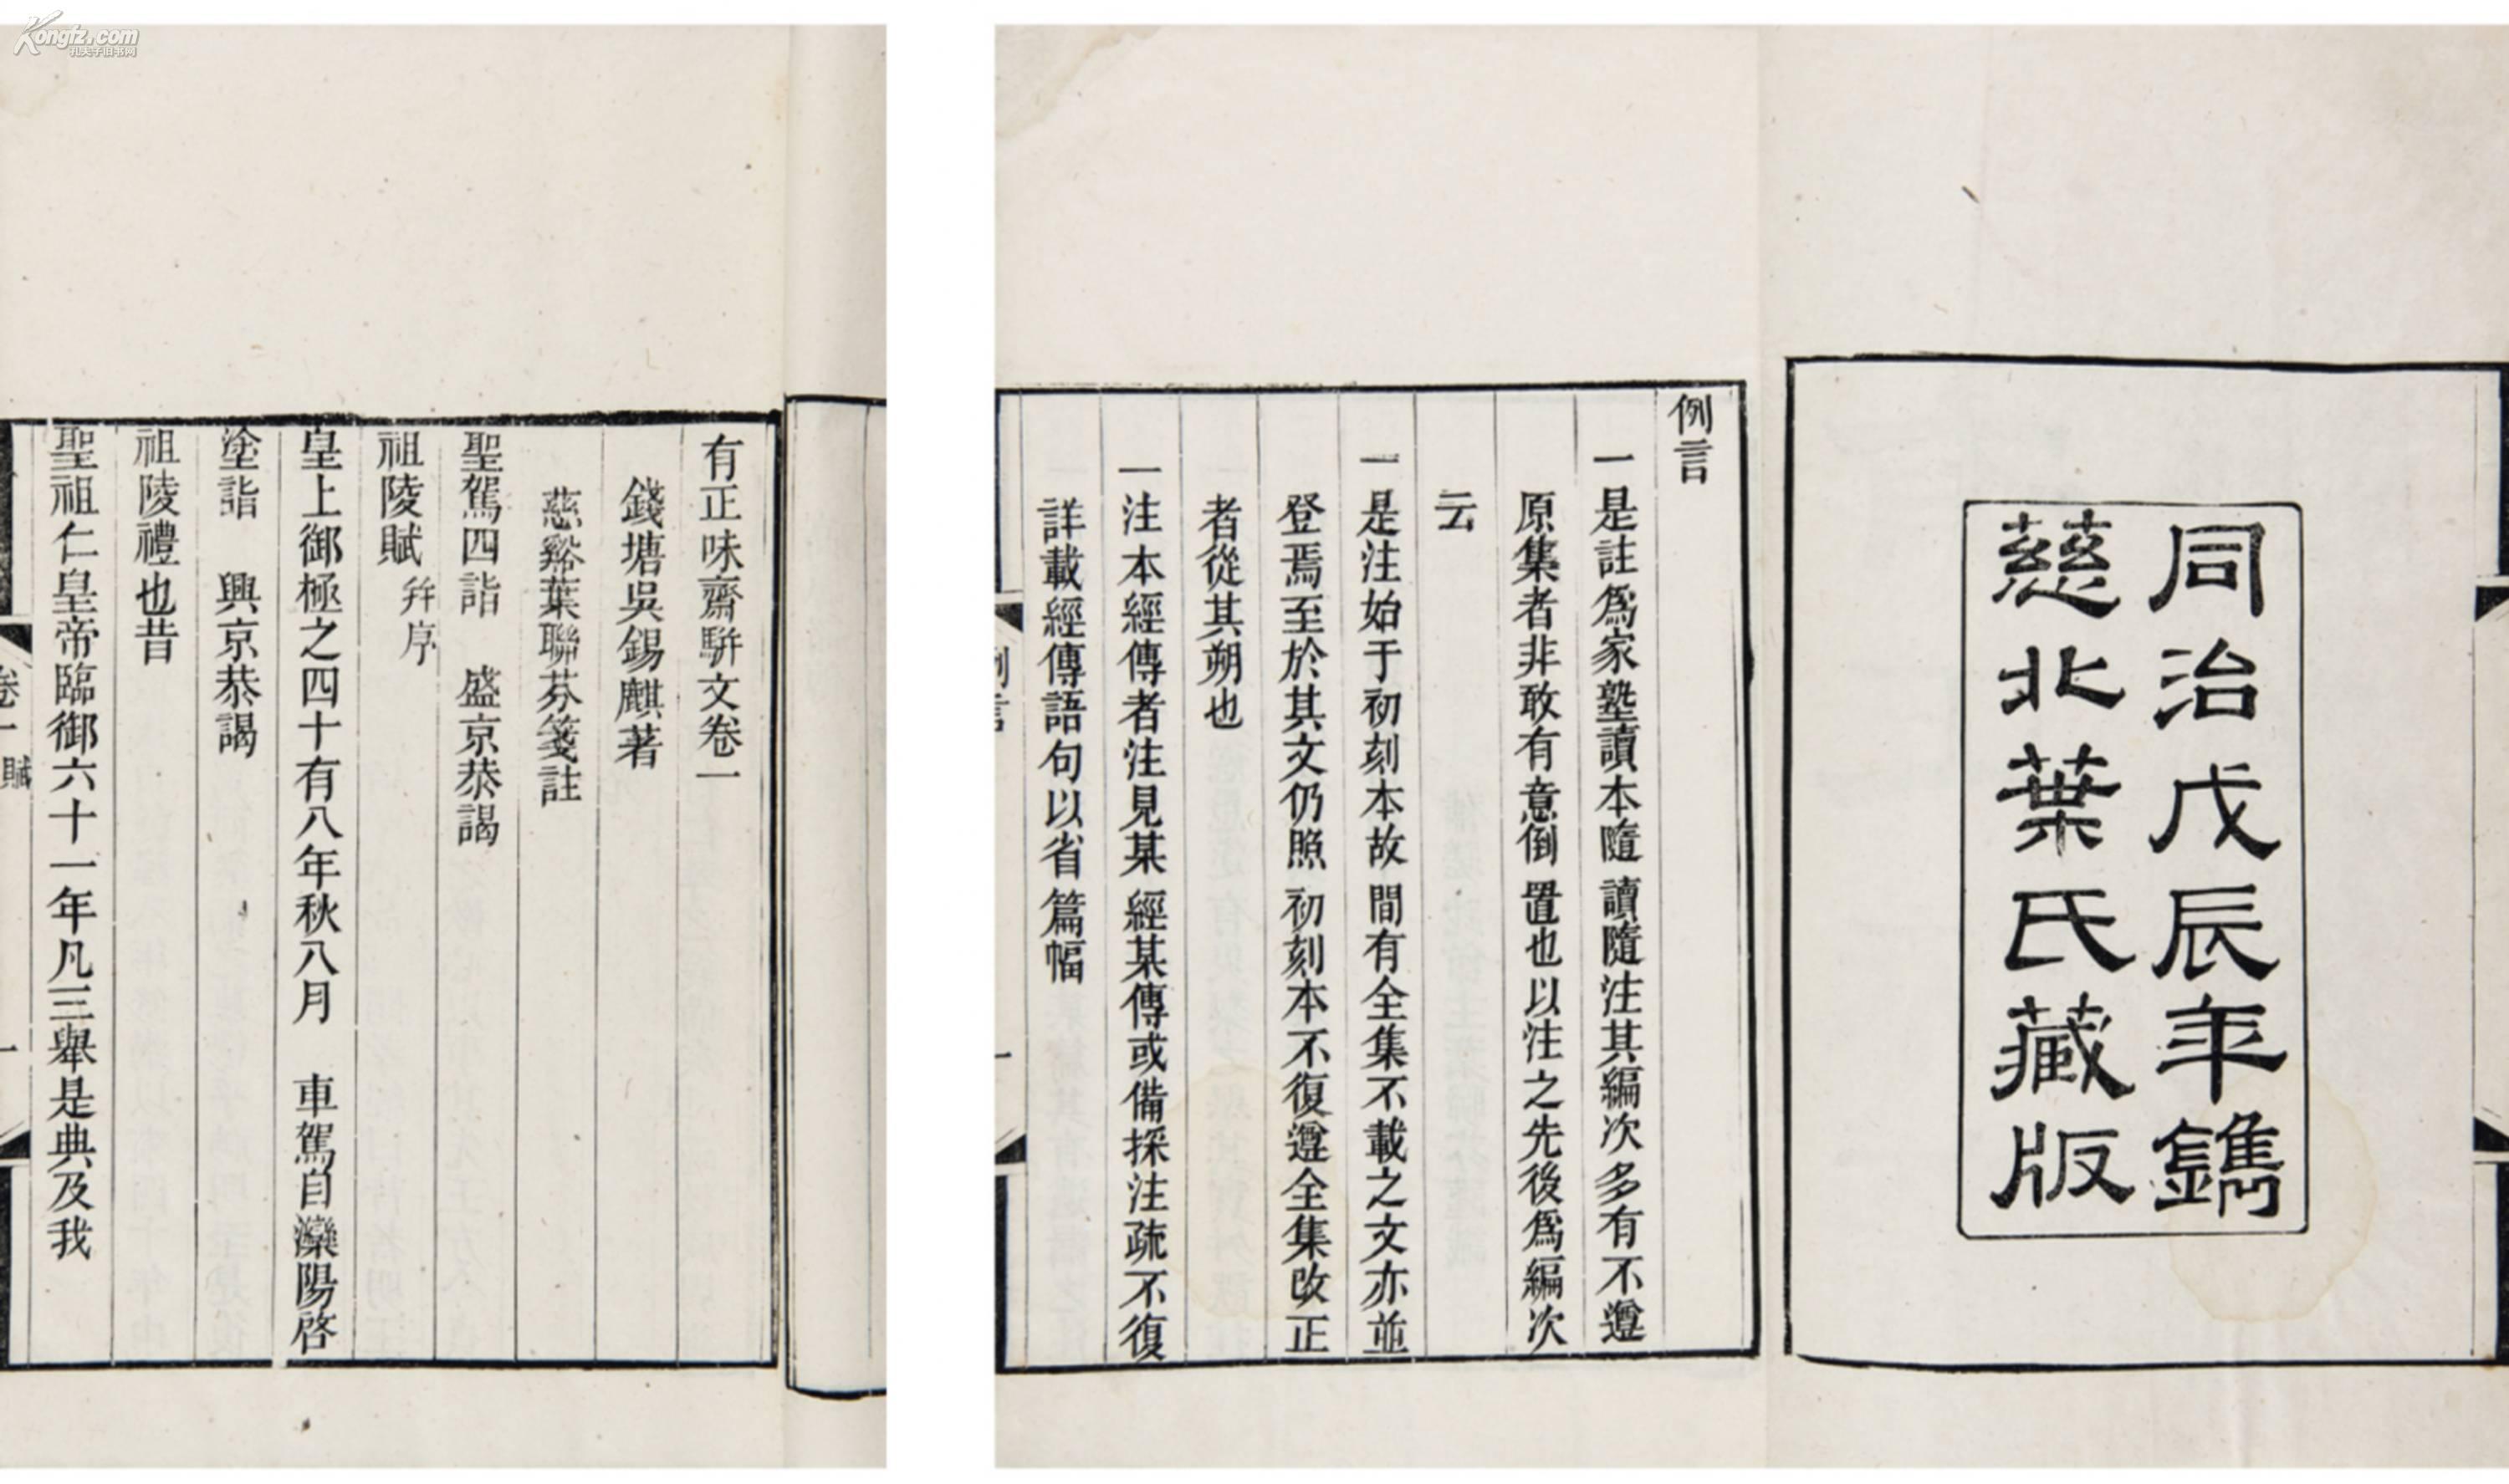 Kongfz.com
孔夫子旧书网
同治戊辰年鐫
慈北葉氏藏版
例言
一是註爲家塾讀本隨讀隨注其編次多有不遵
原集者非敢有意倒置也以注之先後爲編次
云
一是注始于初刻本故間有全集不載之文亦並
登焉至於其文仍照初刻本不復遵全集改正
者從其朔也
一注本經傳者注見某經某傳或備採注疏不復
詳載經傳語句以省篇幅
例言
一
有正味齋駢文卷一
錢塘吳錫麒著
慈谿葉聯芬箋註
聖駕四詣 盛京恭謁
祖陵賦 幷序
皇上御極之四十有八年秋八月 車駕自灤陽啓
塗詣 興京恭謁
祖陵禮也昔
聖祖仁皇帝臨御六十一年凡三舉是典及我
卷一 賦
一